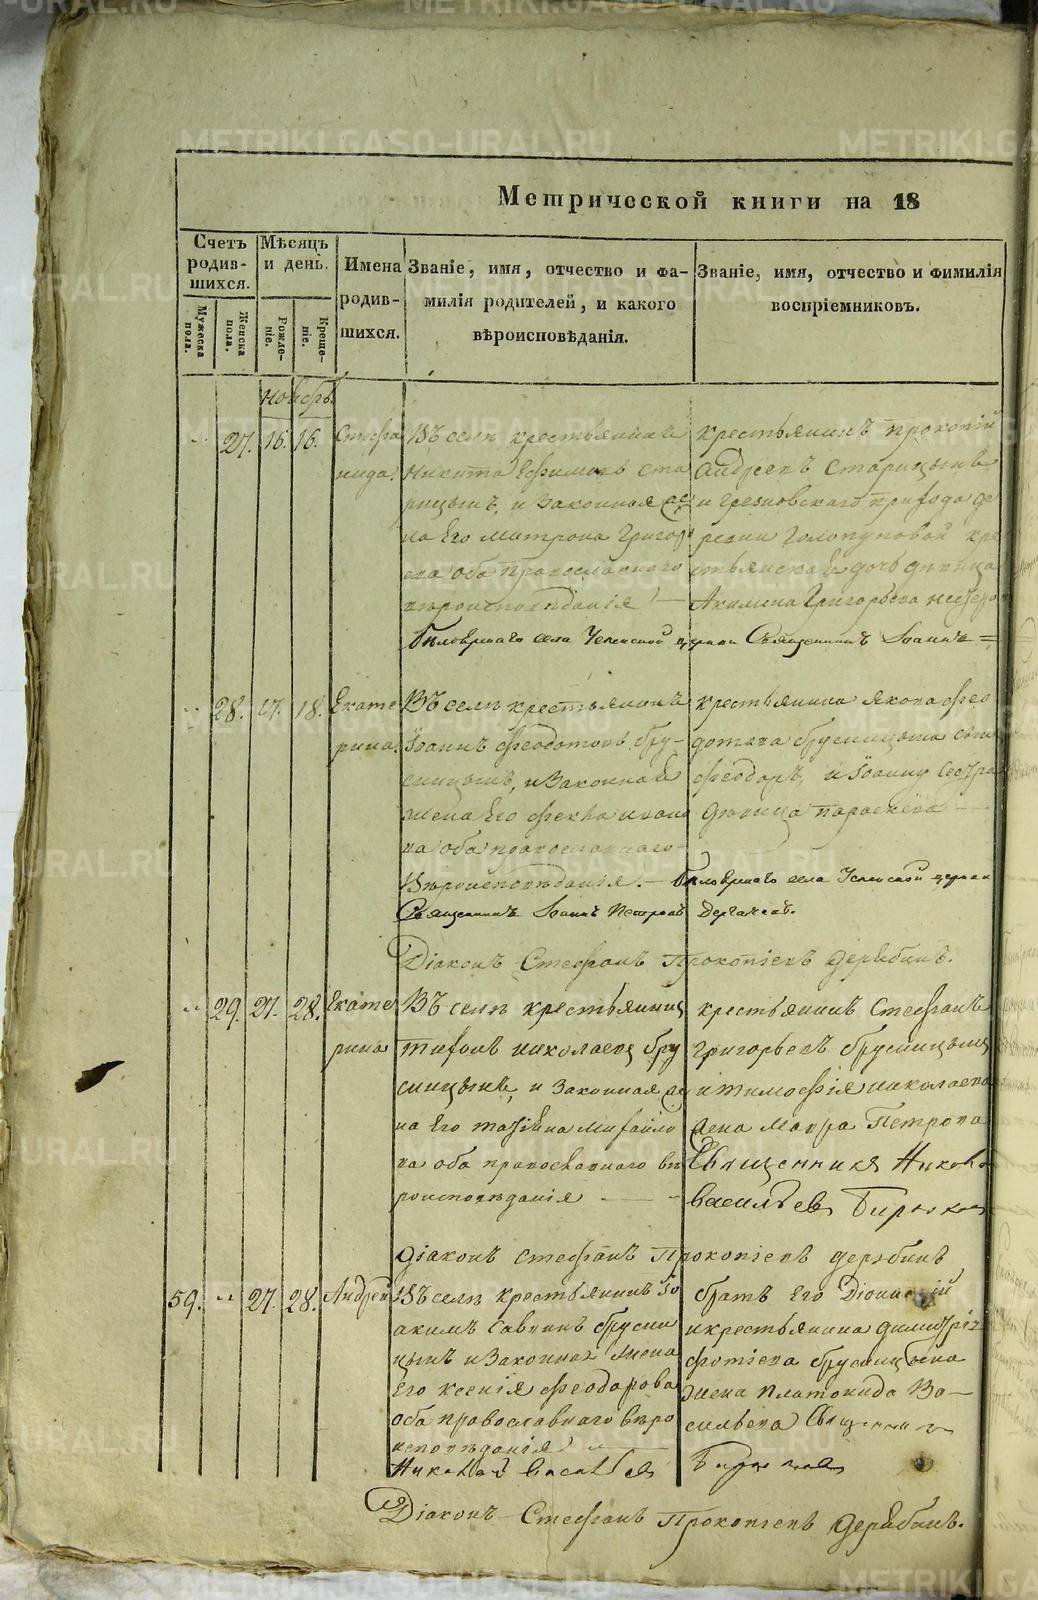 Метрической книги на 18
Счетъ родив-шихся.
Мужеска пола.
Женска пола.
Мѣсяцъ и день.
Рожде-ніе.
Креще-ніе.
Имена родив-шихся.
Званіе, имя, отчество и фа-
милія родителей, и какого
вѣроисповѣданія.
Званіе, имя, отчество и фимилія
воспріемниковъ.
ноябрь
27. 16. 16.
Стефа
нида.
Въ селѣ крестьянинъ
Никита Ефимовъ ста
рицынъ, и законная же
на Его Матрона Григорь
ева оба православнаго
вѣроисповѣданія
крестьянинъ Прокопій
Андреевъ Старицынъ
и Грезновскаго прихода де
ревни Голопуповой кре
стьянская дочь дѣвица
Акилина Григорьева
села Успенской церкви Священникъ Іоаннъ =
28. 17. 18.
Екате
рина.
Въ селѣ крестьянинъ
Іоаннъ Феодотовъ Бру-
сницынъ, и законная
жена Его Фекла
ва оба православнаго
вѣроисповѣданія.
крестьянина Якова Фео
дотова Брусницына сынъ
Феодоръ, и Іоанну сестра
дѣвица Параскева
села Успенской церкви
Священникъ Іоаннъ Петровъ Дергачевъ.
Діаконъ Стефанъ Прокопіевъ Дерябинъ.
29. 27. 28.
Екате
рина
Въ селѣ крестьянинъ
Тихонъ Николаевъ Бру
сницынъ, и законная же
на Его Татіана Михайло
ва оба православнаго вѣ
роисповѣданія
крестьянинъ Стефанъ
Григорьевъ Брусницынъ
и Тимофія Николаева
жена Мавра Петрова
Священникъ Николай
Васильевъ Бирюковъ
Діаконъ Стефанъ Прокопіевъ Дерябинъ
59. 27. 28.
Андрей
Въ селѣ крестьянинъ Іо
акимъ Саввинъ Брусни
цынъ и законная жена
Его Ксенія Феодорова
оба православнаго вѣро
исповѣданія
братъ Его Діонисій
и крестьянина Димитрія
Фотіева Брусницына
жена Платонида Ва-
сильева Священникъ
Николай Васильевъ Бирюковъ
Діаконъ Стефанъ Прокопіевъ Дерябинъ.
METRIKI.GASO-URAL.RU